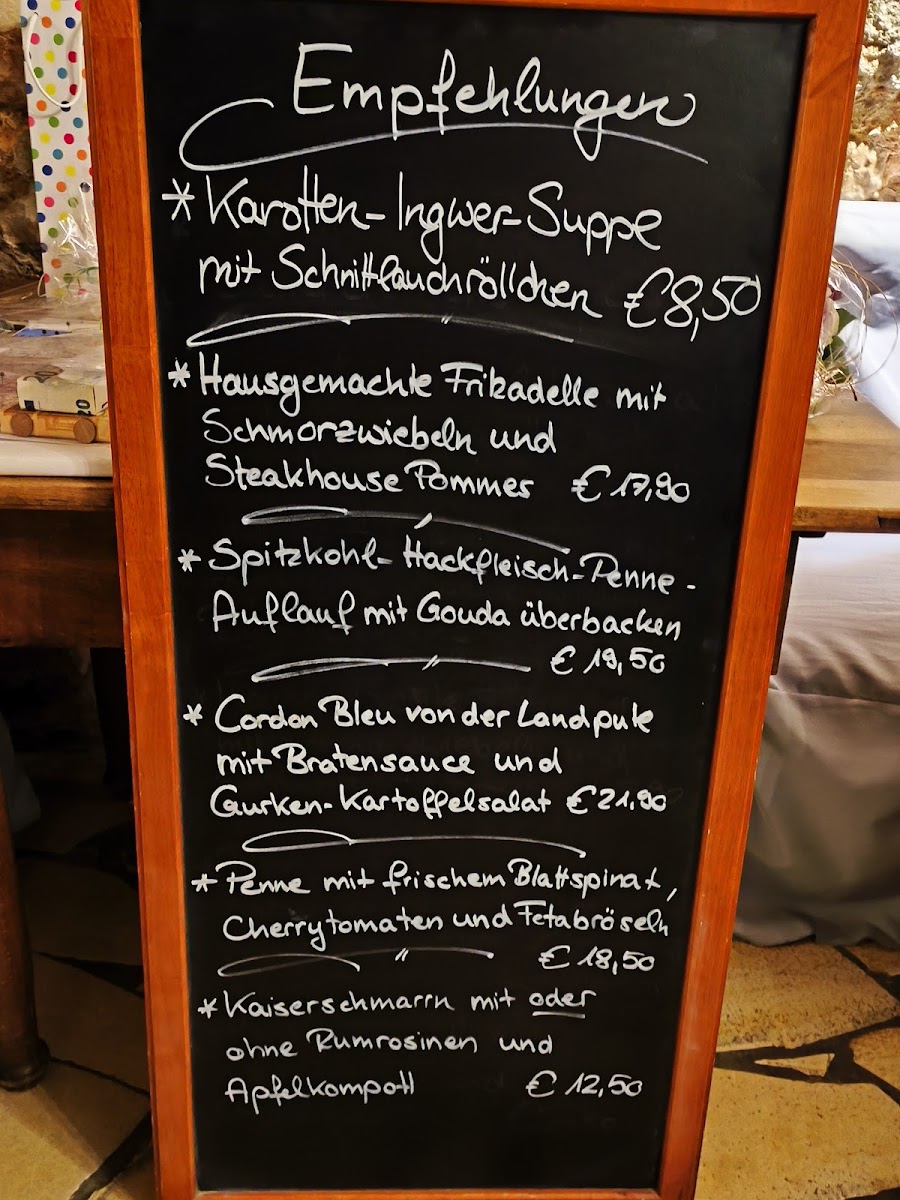 Empfehlungen
* Karotten-Ingwer-Suppe
mit Schnittlauchröllchen €8,50
* Hausgemachte Frikadelle mit
Schmorzwiebeln und
Steakhouse Pommes €17,90
* Spitzkohl-Hackfleisch-Penne-
Auflauf mit Gouda überbacken
€ 19,50
* Cordon Bleu von der Landpute
mit Bratensauce und
Gurken-Kartoffelsalat €21,90
* Penne mit frischem Blattspinat,
Cherrytomaten und Fetabröseln
€ 18,50
* Kaiserschmarrn mit oder
ohne Rumrosinen und
Apfelkompott € 12,50